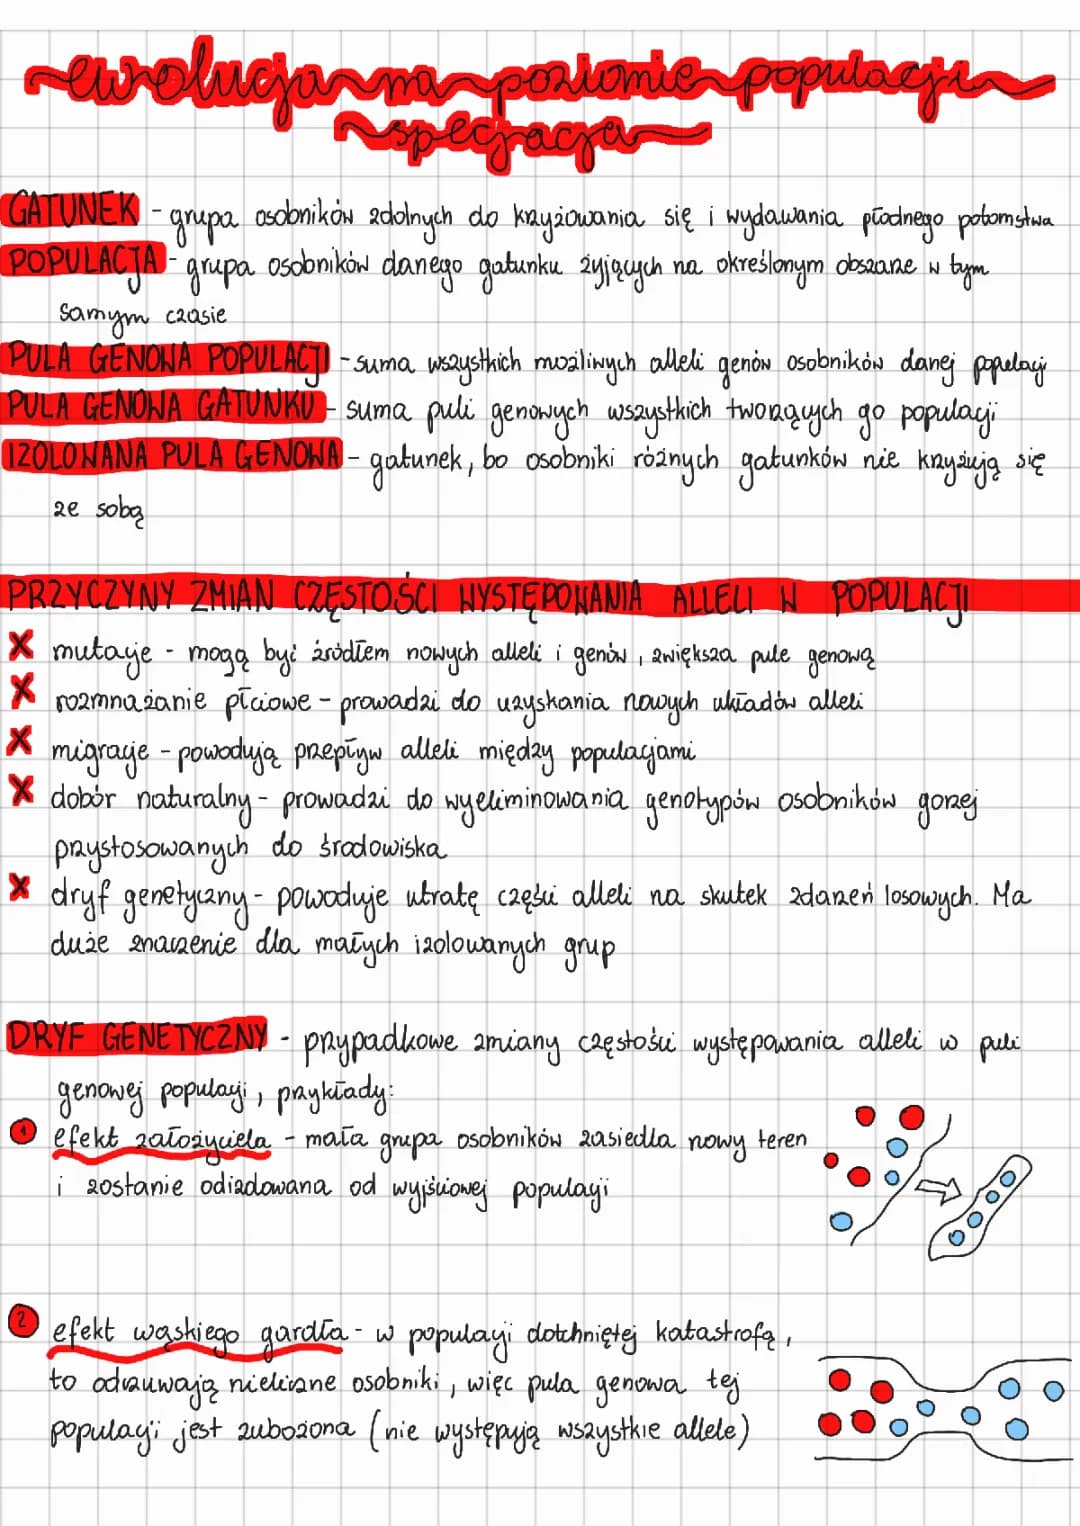 ewolucja na poziomie populacji
specjacja
GATUNEK - grupa osobników zdolnych do krzyżowania się i wydawania płodnego potomstwa
POPULACJA - grupa osobników danego gatunku żyjących na określonym obszarze w tym
samym czasie
PULA GENOWA POPULACJI - suma wszystkich możliwych alleli genów osobników danej populacji
PULA GENOWA GATUNKU - suma puli genowych wszystkich tworzących go populacji
IZOLOWANA PULA GENOWA - gatunek, bo osobniki różnych gatunków nie krzyżują się
ze sobą
PRZYCZYNY ZMIAN CZĘSTOŚCI WYSTĘPOWANIA ALLELI W POPULACJI
x mutacje - mogą być źródłem nowych alleli i genów, zwiększa pule genową
x rozmnażanie płciowe - prowadzi do uzyskania nowych układów alleli
x migracje - powodują przepływ alleli między populacjami
x dobór naturalny - prowadzi do wyeliminowania genotypów osobników gorzej
przystosowanych do środowiska
x dryf genetyczny - powoduje utratę części alleli na skutek zdarzeń losowych. Ma
duże znaczenie dla małych izolowanych grup
DRYF GENETYCZNY - przypadkowe zmiany częstości występowania alleli w puli
genowej populacji, przykłady:
1 efekt założyciela - mała grupa osobników zasiedla nowy teren
i zostanie odizdowana od wyjściowej populacji
2 efekt wąskiego gardła - w populacji dotchniętej katastrofą,
to odczuwają nieliczne osobniki, więc pula genowa tej
populacji jest zubożona (nie występują wszystkie allele)